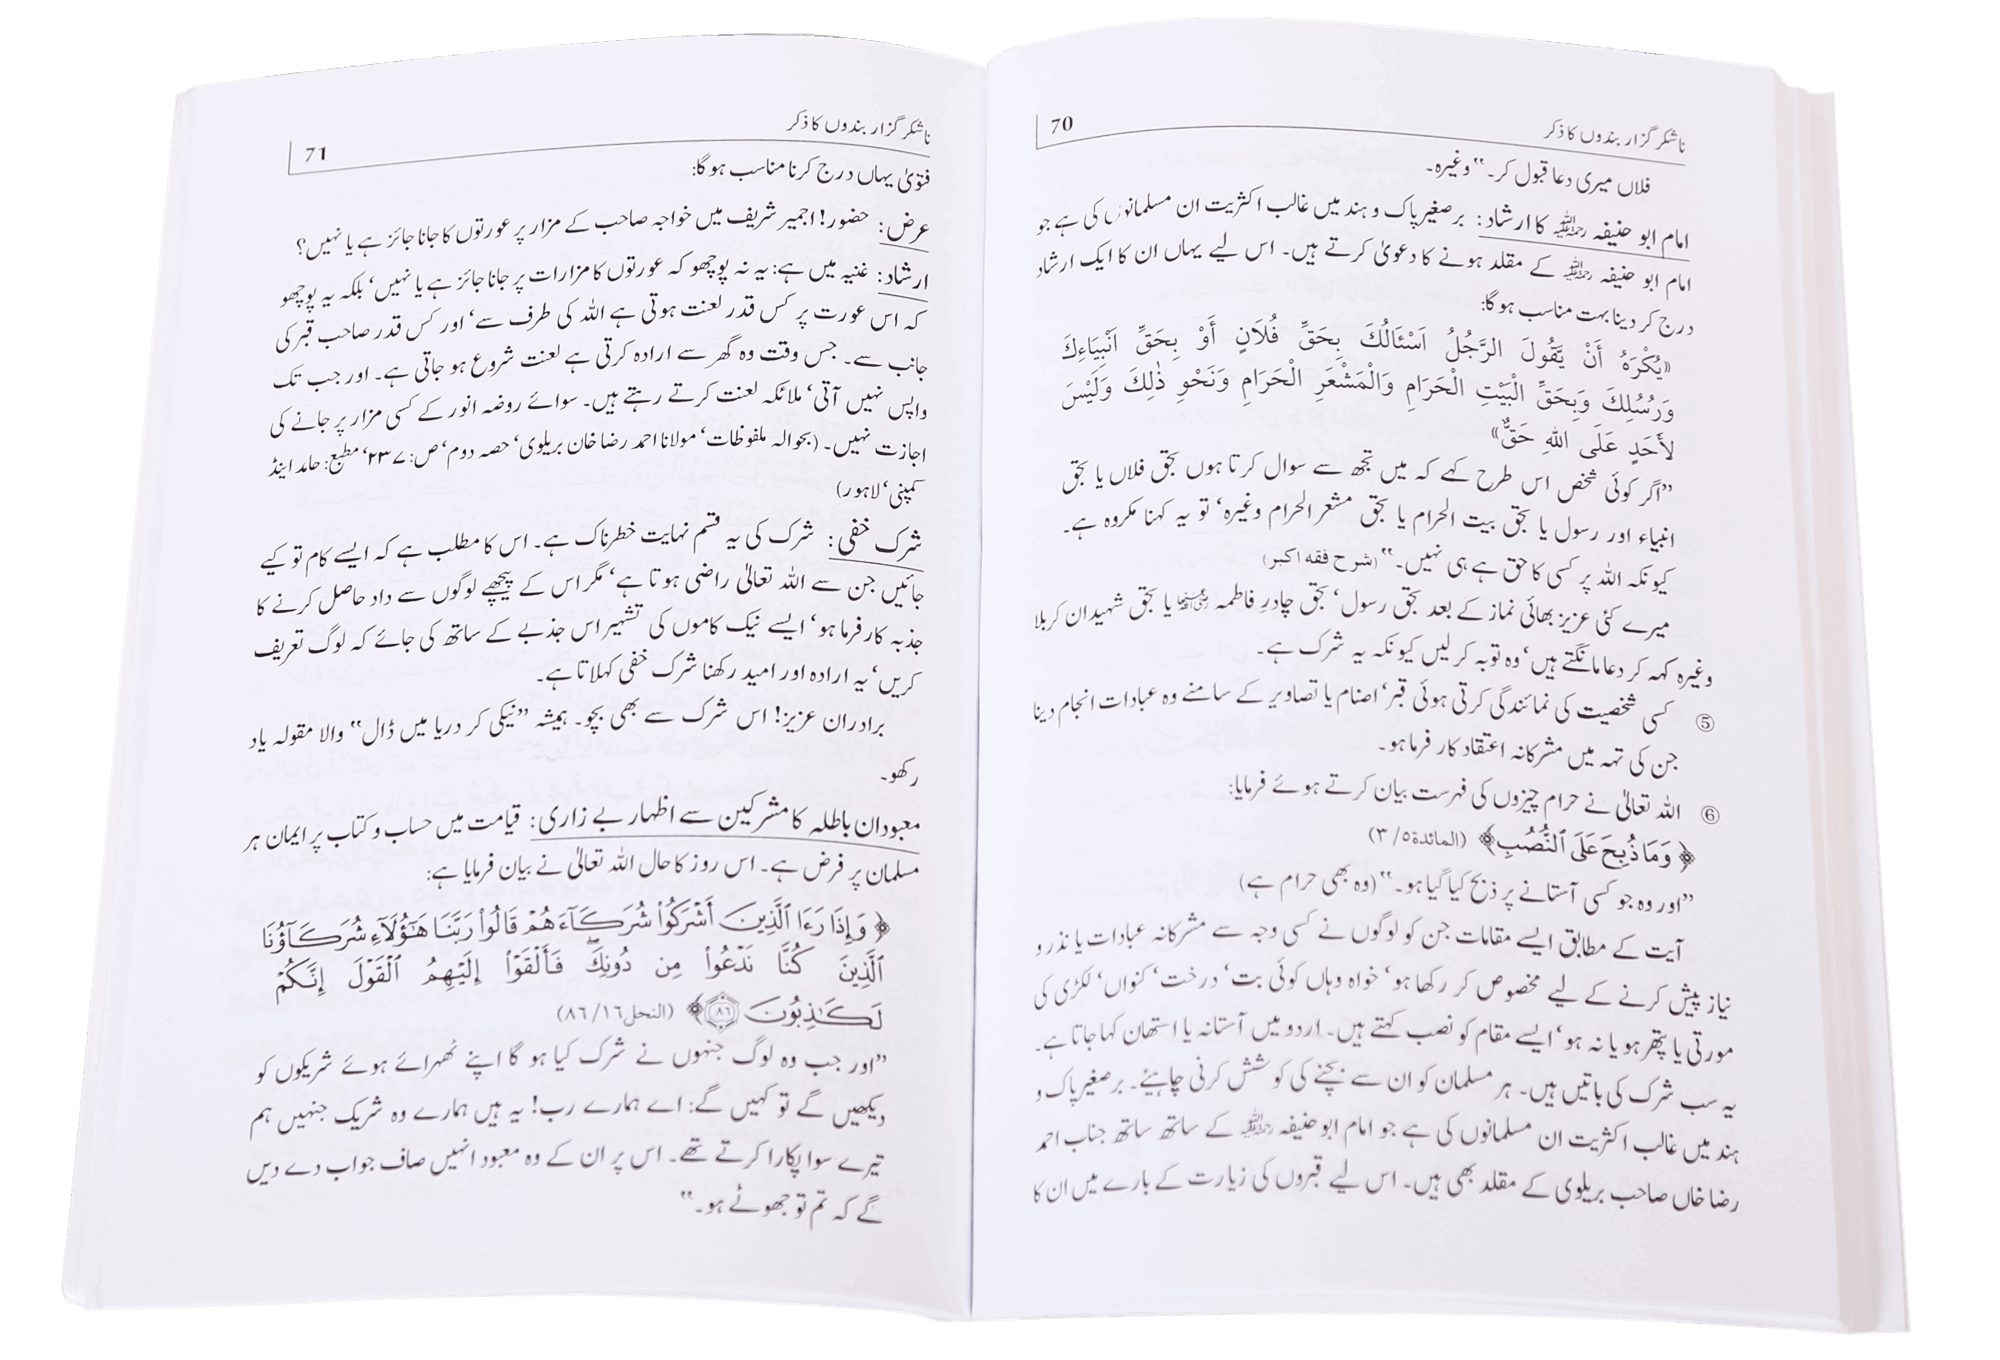 ناشکر گزار بندوں کا ذکر 70
فلاں میری دعا قبول کر۔“ وغیرہ۔
امام ابو حنیفہ رحمہ اللہ کا ارشاد: برصغیر پاک و ہند میں غالب اکثریت ان مسلمانوں کی ہے جو
امام ابو حنیفہ رحمہ اللہ کے مقلد ہونے کا دعویٰ کرتے ہیں۔ اس لیے یہاں ان کا ایک ارشاد
درج کر دینا بہت مناسب ہوگا:
«يُكْرَهُ أَنْ يَقُولَ الرَّجُلُ اَسْئَالُكَ بِحَقِّ فُلَانٍ أَوْ بِحَقِّ اَنْبِيَاءِكَ
وَرُسُلِكَ وَبِحَقِّ الْبَيْتِ الْحَرَامِ وَالْمَشْعَرِ الْحَرَامِ وَنَحْوِ ذٰلِكَ وَلَيْسَ
لأَحَدٍ عَلَى اللهِ حَقٌّ»
”اگر کوئی شخص اس طرح کہے کہ میں تجھ سے سوال کرتا ہوں بحق فلاں یا بحق
انبیاء اور رسول یا بحق بیت الحرام یا بحق مشعر الحرام وغیرہ‘ تو یہ کہنا مکروہ ہے۔
کیونکہ اللہ پر کسی کا حق ہے ہی نہیں۔“ (شرح فقہ اکبر)
میرے کئی عزیز بھائی نماز کے بعد بحق رسول‘ بحق چادرِ فاطمہ رضی اللہ عنہا یا بحق شہیدان کربلا
وغیرہ کہہ کر دعا مانگتے ہیں‘ وہ توبہ کر لیں کیونکہ یہ شرک ہے۔
⑤ کسی شخصیت کی نمائندگی کرتی ہوئی قبر‘ اصنام یا تصاویر کے سامنے وہ عبادات انجام دینا
جن کی تہہ میں مشرکانہ اعتقاد کار فرما ہو۔
⑥ اللہ تعالیٰ نے حرام چیزوں کی فہرست بیان کرتے ہوئے فرمایا:
﴿وَمَا ذُبِحَ عَلَى ٱلنُّصُبِ﴾ (المائدة۵/ ۳)
”اور وہ جو کسی آستانے پر ذبح کیا گیا ہو۔“ (وہ بھی حرام ہے)
آیت کے مطابق ایسے مقامات جن کو لوگوں نے کسی وجہ سے مشرکانہ عبادات یا نذر و
نیاز پیش کرنے کے لیے مخصوص کر رکھا ہو‘ خواہ وہاں کوئی بت‘ درخت‘ کنواں‘ لکڑی کی
مورتی یا پتھر ہو یا نہ ہو‘ ایسے مقام کو نصب کہتے ہیں۔ اردو میں آستانہ یا استھان کہا جاتا ہے۔
یہ سب شرک کی باتیں ہیں۔ ہر مسلمان کو ان سے بچنے کی کوشش کرنی چاہیئے۔ برصغیر پاک و
ہند میں غالب اکثریت ان مسلمانوں کی ہے جو امام ابو حنیفہ رحمہ اللہ کے ساتھ ساتھ جناب احمد
رضا خاں صاحب بریلوی کے مقلد بھی ہیں۔ اس لیے قبروں کی زیارت کے بارے میں ان کا
ناشکر گزار بندوں کا ذکر 71
فتویٰ یہاں درج کرنا مناسب ہوگا:
عرض: حضور! اجمیر شریف میں خواجہ صاحب کے مزار پر عورتوں کا جانا جائز ہے یا نہیں؟
ارشاد: غنیہ میں ہے: یہ نہ پوچھو کہ عورتوں کا مزارات پر جانا جائز ہے یا نہیں‘ بلکہ یہ پوچھو
کہ اس عورت پر کس قدر لعنت ہوتی ہے اللہ کی طرف سے‘ اور کس قدر صاحب قبر کی
جانب سے۔ جس وقت وہ گھر سے ارادہ کرتی ہے لعنت شروع ہو جاتی ہے۔ اور جب تک
واپس نہیں آتی‘ ملائکہ لعنت کرتے رہتے ہیں۔ سوائے روضہ انور کے کسی مزار پر جانے کی
اجازت نہیں۔ (بحوالہ ملفوظات‘ مولانا احمد رضا خان بریلوی‘ حصہ دوم‘ ص: ۲۳۷‘ مطبع: حامد اینڈ
کمپنی‘ لاہور)
شرک خفی: شرک کی یہ قسم نہایت خطرناک ہے۔ اس کا مطلب ہے کہ ایسے کام تو کیے
جائیں جن سے اللہ تعالیٰ راضی ہوتا ہے‘ مگر اس کے پیچھے لوگوں سے داد حاصل کرنے کا
جذبہ کارفرما ہو‘ ایسے نیک کاموں کی تشہیر اس جذبے کے ساتھ کی جائے کہ لوگ تعریف
کریں‘ یہ ارادہ اور امید رکھنا شرک خفی کہلاتا ہے۔
برادران عزیز! اس شرک سے بھی بچو۔ ہمیشہ ”نیکی کر دریا میں ڈال“ والا مقولہ یاد
رکھو۔
معبودان باطلہ کا مشرکین سے اظہار بے زاری: قیامت میں حساب و کتاب پر ایمان ہر
مسلمان پر فرض ہے۔ اس روز کا حال اللہ تعالیٰ نے بیان فرمایا ہے:
﴿وَإِذَا رَءَا ٱلَّذِينَ أَشْرَكُوا۟ شُرَكَآءَهُمْ قَالُوا۟ رَبَّنَا هَٰٓؤُلَآءِ شُرَكَآؤُنَا
ٱلَّذِينَ كُنَّا نَدْعُوا۟ مِن دُونِكَ ۖ فَأَلْقَوْا۟ إِلَيْهِمُ ٱلْقَوْلَ إِنَّكُمْ
لَكَـٰذِبُونَ ۝٨٦﴾ (النحل١٦/ ٨٦)
”اور جب وہ لوگ جنہوں نے شرک کیا ہو گا اپنے ٹھہرائے ہوئے شریکوں کو
دیکھیں گے تو کہیں گے: اے ہمارے رب! یہ ہیں ہمارے وہ شریک جنہیں ہم
تیرے سوا پکارا کرتے تھے۔ اس پر ان کے وہ معبود انہیں صاف جواب دے دیں
گے کہ تم تو جھوٹے ہو۔“